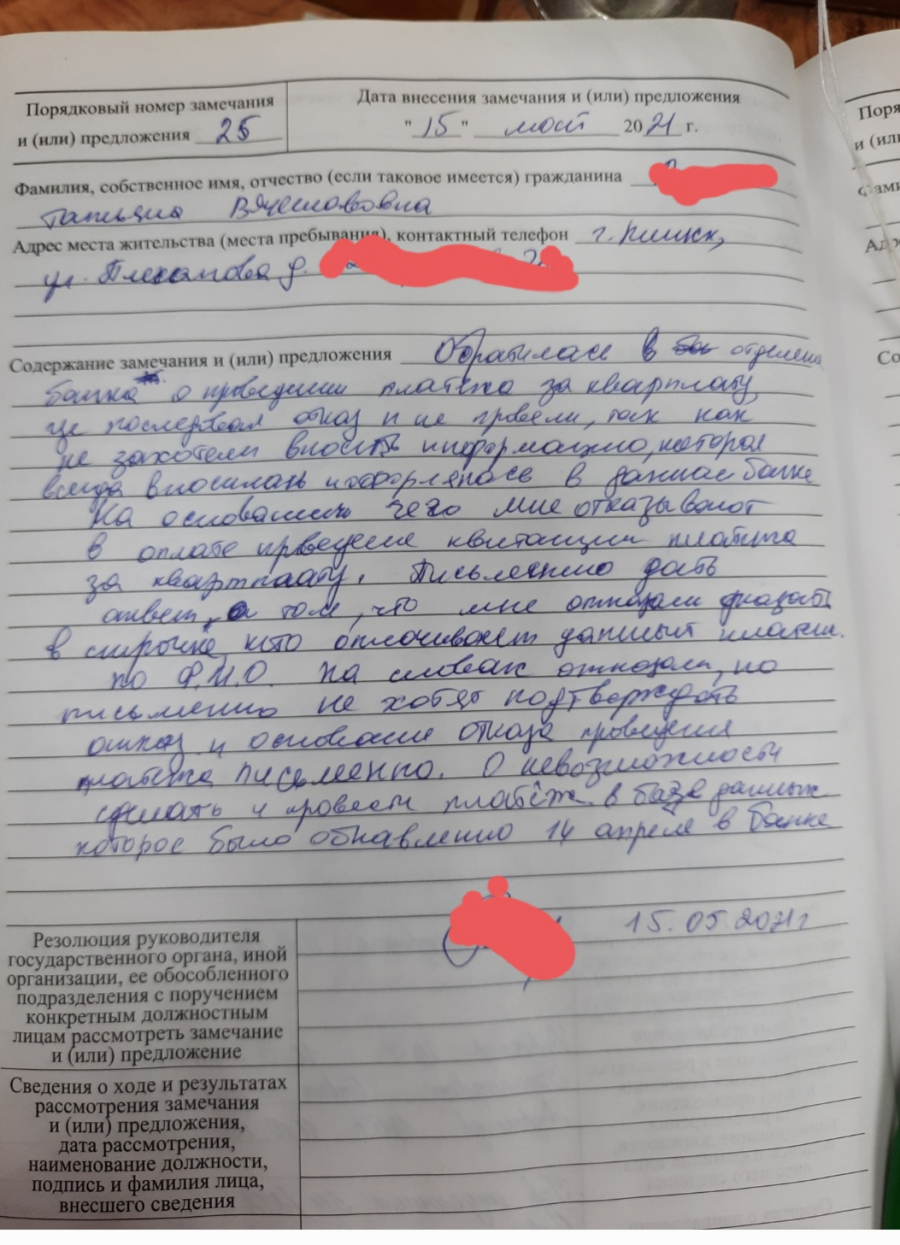 Порядковый номер замечания
и (или) предложения 25
Дата внесения замечания и (или) предложения
"15" мая 2021 г.
Фамилия, собственное имя, отчество (если таковое имеется) гражданина
Татьяна Вячеславовна
Адрес места жительства (места пребывания), контактный телефон г. Минск,
ул. Плеханова д.
Содержание замечания и (или) предложения Обратилась в отделени
банка о проведении платежа за квартплату,
где последовал отказ и не провели, так как
не захотели вносить информацию, которая
всегда вносилась и оформлялась в данном банке
На основании чего мне отказывают
в оплате проведение квитанции платежа
за квартплату. Письменно дать
ответ, о том, что мне отказали указать
в строчке, кто оплочивает данный платеж.
по Ф.И.О. На словах отказали, но
письменно не хотят подтверждать
отказ и основание отказа проведения
платежа письменно. О невозможности
сделать и провести платёж в базе данных
которое было обнавленно 14 апреле в банке
15.05.2021г
Резолюция руководителя
государственного органа, иной
организации, ее обособленного
подразделения с поручением
конкретным должностным
лицам рассмотреть замечание
и (или) предложение
Сведения о ходе и результатах
рассмотрения замечания
и (или) предложения,
дата рассмотрения,
наименование должности,
подпись и фамилия лица,
внесшего сведения